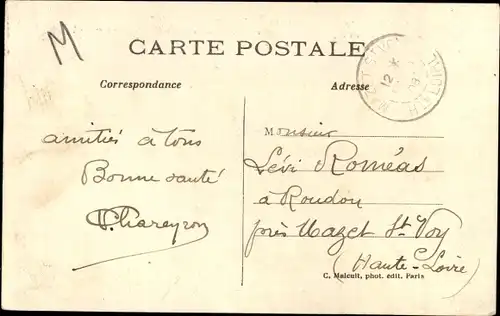 M
CARTE POSTALE
Correspondance
Adresse
amitiés à tous
Bonne santé
V. Chareyron
Monsieur
Lévi Roméas
à Roudon
près Mazet St Voy
(Haute-Loire)
C. Malcuit, phot. édit. Paris